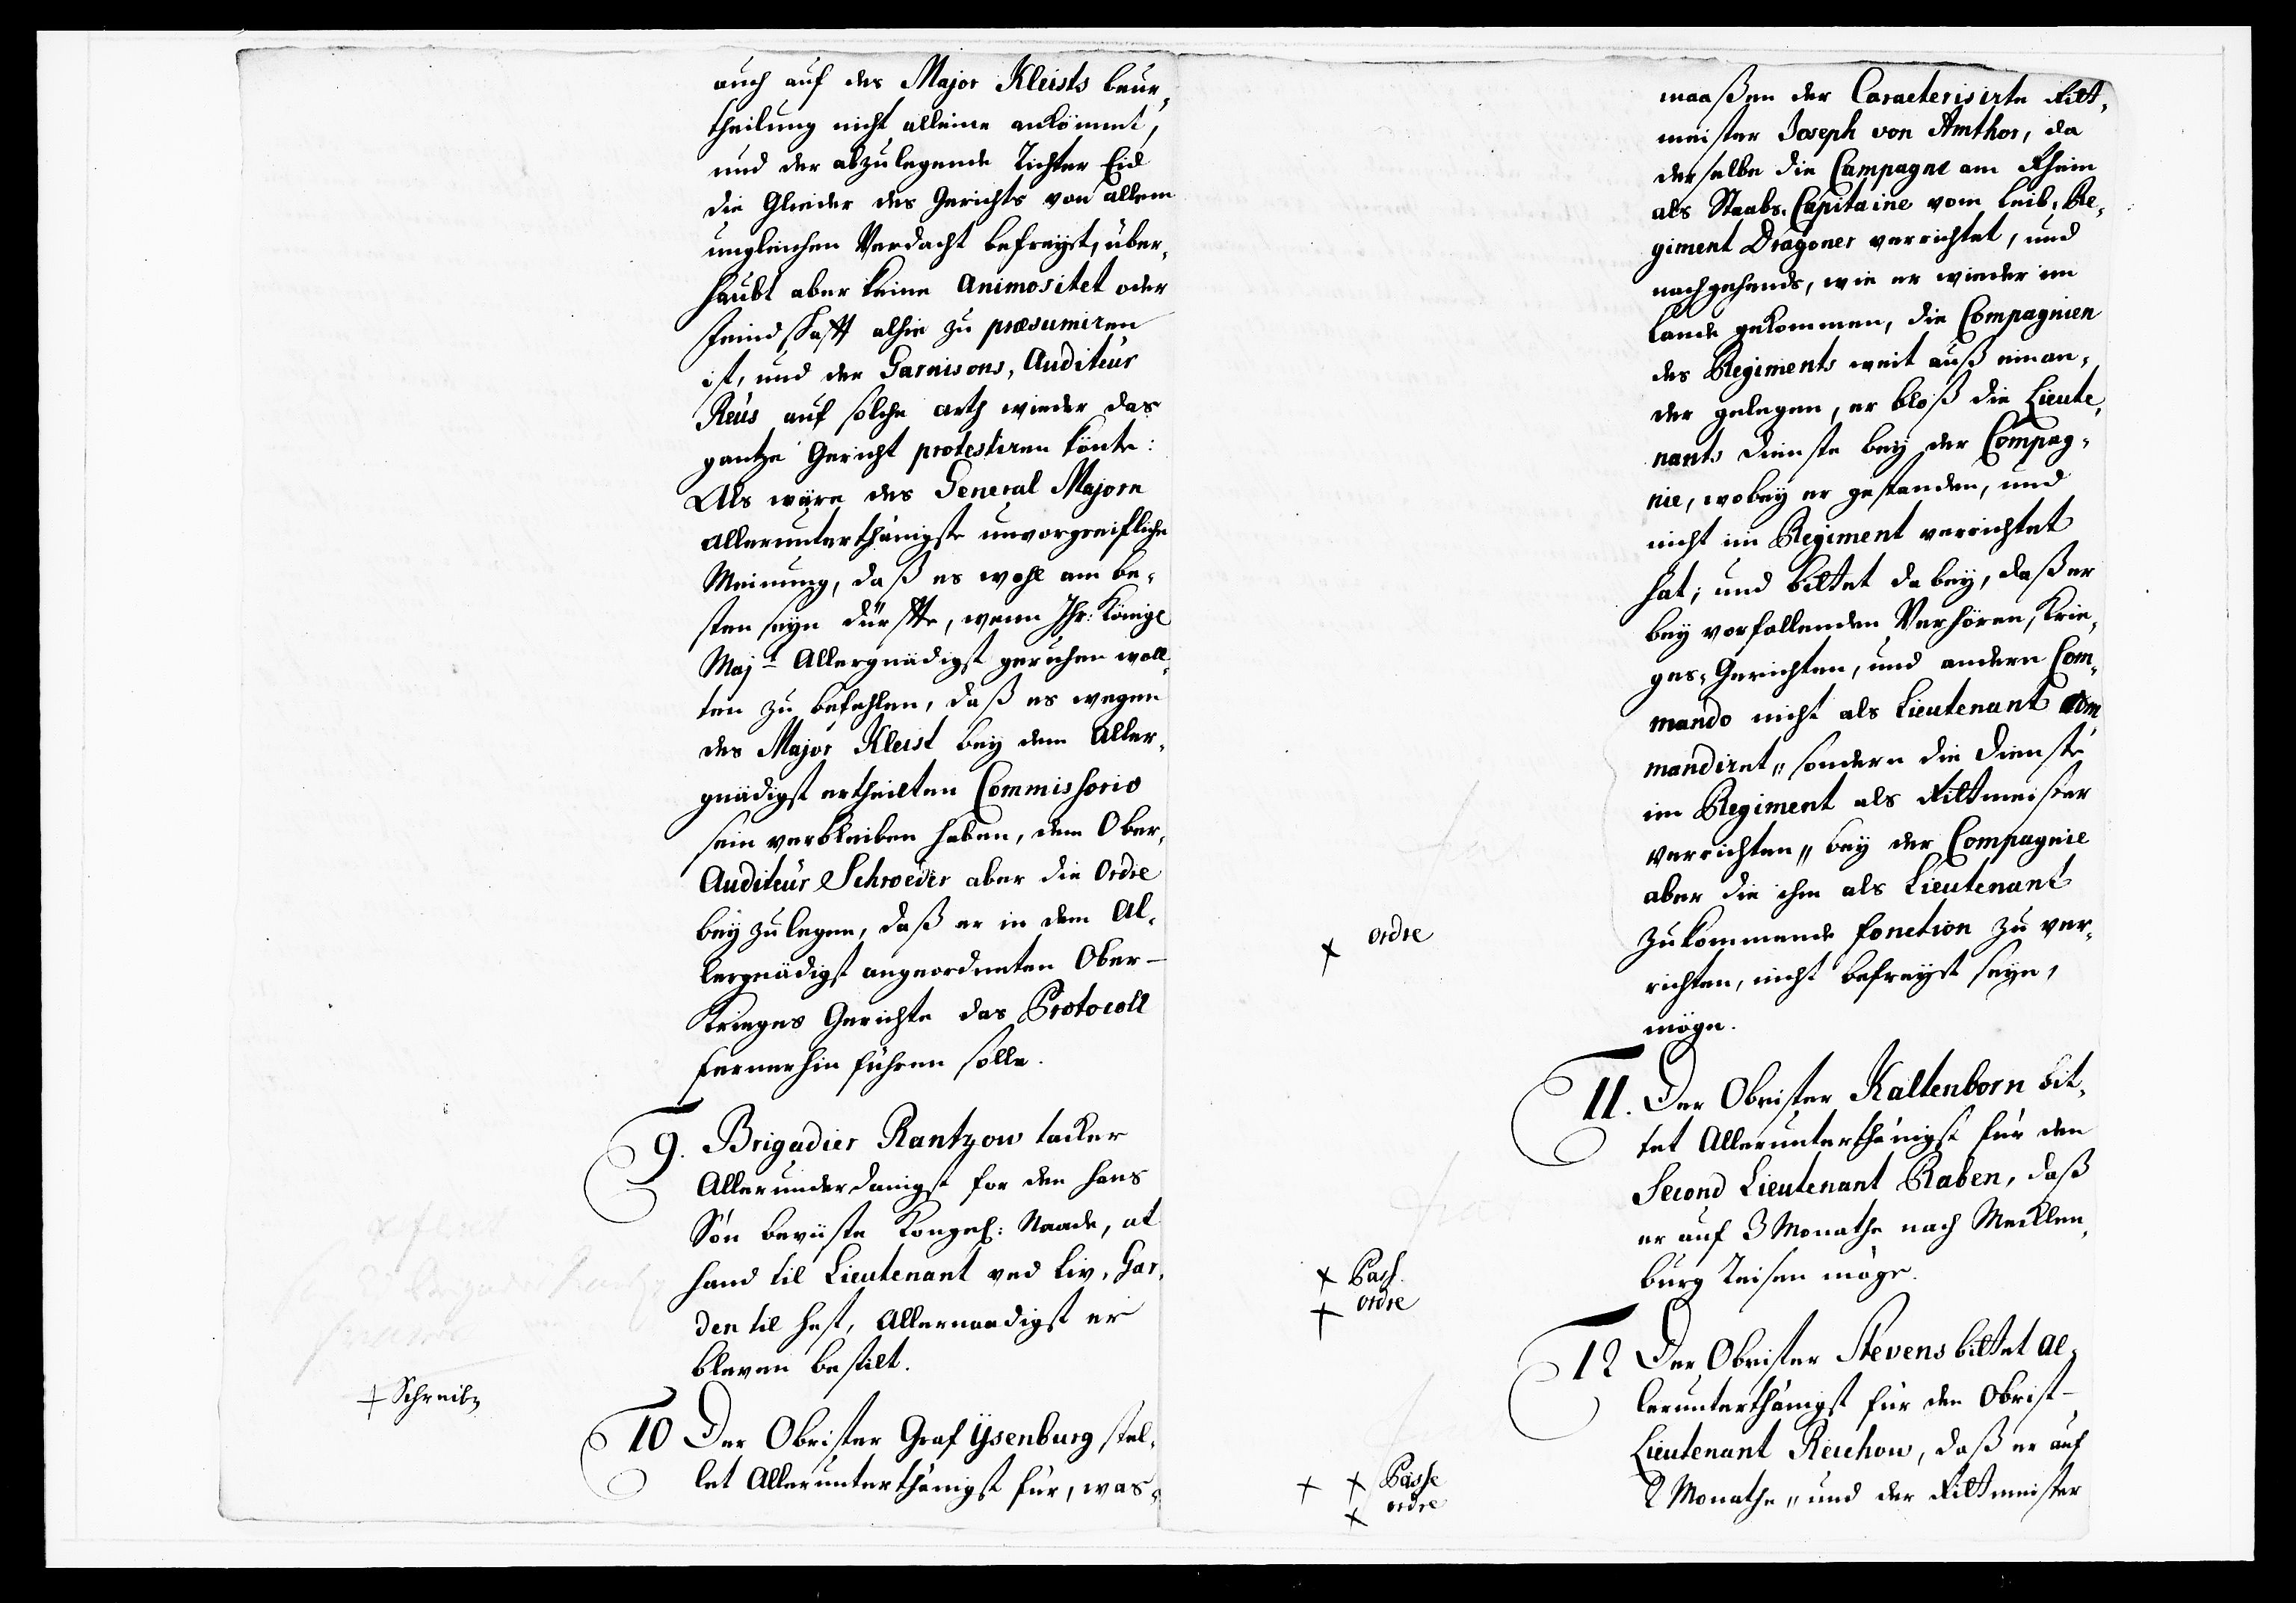 auch auf des Major Kleists beur,
theilung nicht alleine ankömmt,
und der abzulegende Richter Eid
die Glieder des Gerichts von allem
ungleichen Verdacht befreyet, über,
haubt aber keine Animositet oder
feindschafft alhie zu præsumiren
ist, und der Garnisons, Auditeur
Reus auf solche arth wieder das
gantze Gericht protestiren könte:
Als wäre des General Majorn
allerunterthänigste unvorgreifliche
Meinung, daß es wohl am be,
sten seyn dürffte, wenn Ihr: Königl
Majt Allergnädigst geruhen woll,
ten zu befehlen, daß es wegen
des Major Kleist bey dem Aller,
gnädigst ertheilten Commissorio
sein verbleiben haben, dem Ober,
Auditeur Schroeder aber die Ordre
beyzulegen, daß er in dem Al,
lergnädigst angeordneten Ober-
Krieges Gerichte das Protocoll
fernerhin führen solle.
9. Brigadier Rantzow tacker
Allerunderdanigst for den hans
Sön beviiste Kongel: Naade, at
hand til Lieutenant ved Liv, Gar,
den til hest, Allernaadigst er
bleven bestilt.
+ Schreib
10 Der Obrister Graf Ysenburg stel,
let Allerunterthänigst für, was,
maaßen der Caracterisirte Ritt,
meister Joseph von Amthor, da
derselbe die Campagne am Rhein
als Staabs, Capitaine vom Leib, Re,
giment Dragoner verrichtet, und
nachgehends, wie er wieder im
Lande gekommen, die Compagnien
des Regiments weit auß einan,
der gelegen, er bloß die Lieute,
nants dienste bey der Compag,
nie, wobey er gestanden, und
nicht im Regiment verrichtet
hat; und bittet dabey, daß er
bey vorfallenden Verhören, Krie,
ges, Gerichten, und andern Com,
mando nicht als Lieutenant com
mandiret, sondern die dienste
im Regiment als Rittmeister
verrichten, bey der Compagnie
aber die ihm als Lieutenant
zukommende fonction zu ver,
richten, nicht befreyet seyn,
möge.
x ordre
11. Der Obrister Kaltenborn bit,
tet Allerunterthänigst für den
Second Lieutenant Raben, daß
er auf 3 Monathe nach Mecklen,
burg Reisen möge.
x Pass.
+ ordre
12 Der Obrister Stevens bittet al,
lerunterthänigst für den Obrist-
Lieutenant Reichow, daß er auf
2 Monathe, und der Rittmeister
+ x Passe
x ordre